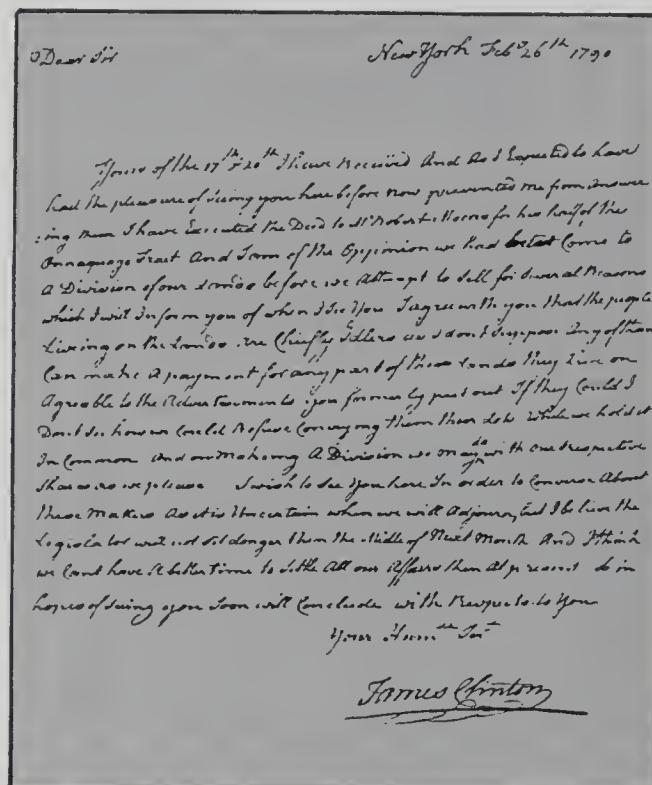 Dear Sir
New York Feb.y 26th 1790
Yours of the 17th & 20th I have Received And As I Expected to have
had the pleasure of Seeing you here before now prevented me from answer
:ing them I have Executed the Deed to Mr Robert for his half of the
Onnaquaga Tract And I am of the Oppinion we had better Come to
A Division of our Lands before we Attempt to Sell for Several Reasons
which I will Inform you of when I See You I agree with you that the people
Living on the Lands are Chiefly Idlers as I dont Suppose Any of them
Can make A payment for any part of those Lands they Live on
Agreable to the Advertisements you formerly put out If they Could I
Dont See how we Could Refuse Conveying them their Lots While we hold it
In Common And on Makeing A Division we may do with our respective
Shares as we please I wish to See You here In order to Converse About
these Matters As it is Uncertain when we will Adjourn, but I believe the
Legislator will not Set Longer than the Midle of Next Month And I think
we Cant have A better time to Settle All our Affairs than At present So in
hopes of Seeing you Soon will Conclude with Respects to You
Your Humle Sert
James Clinton